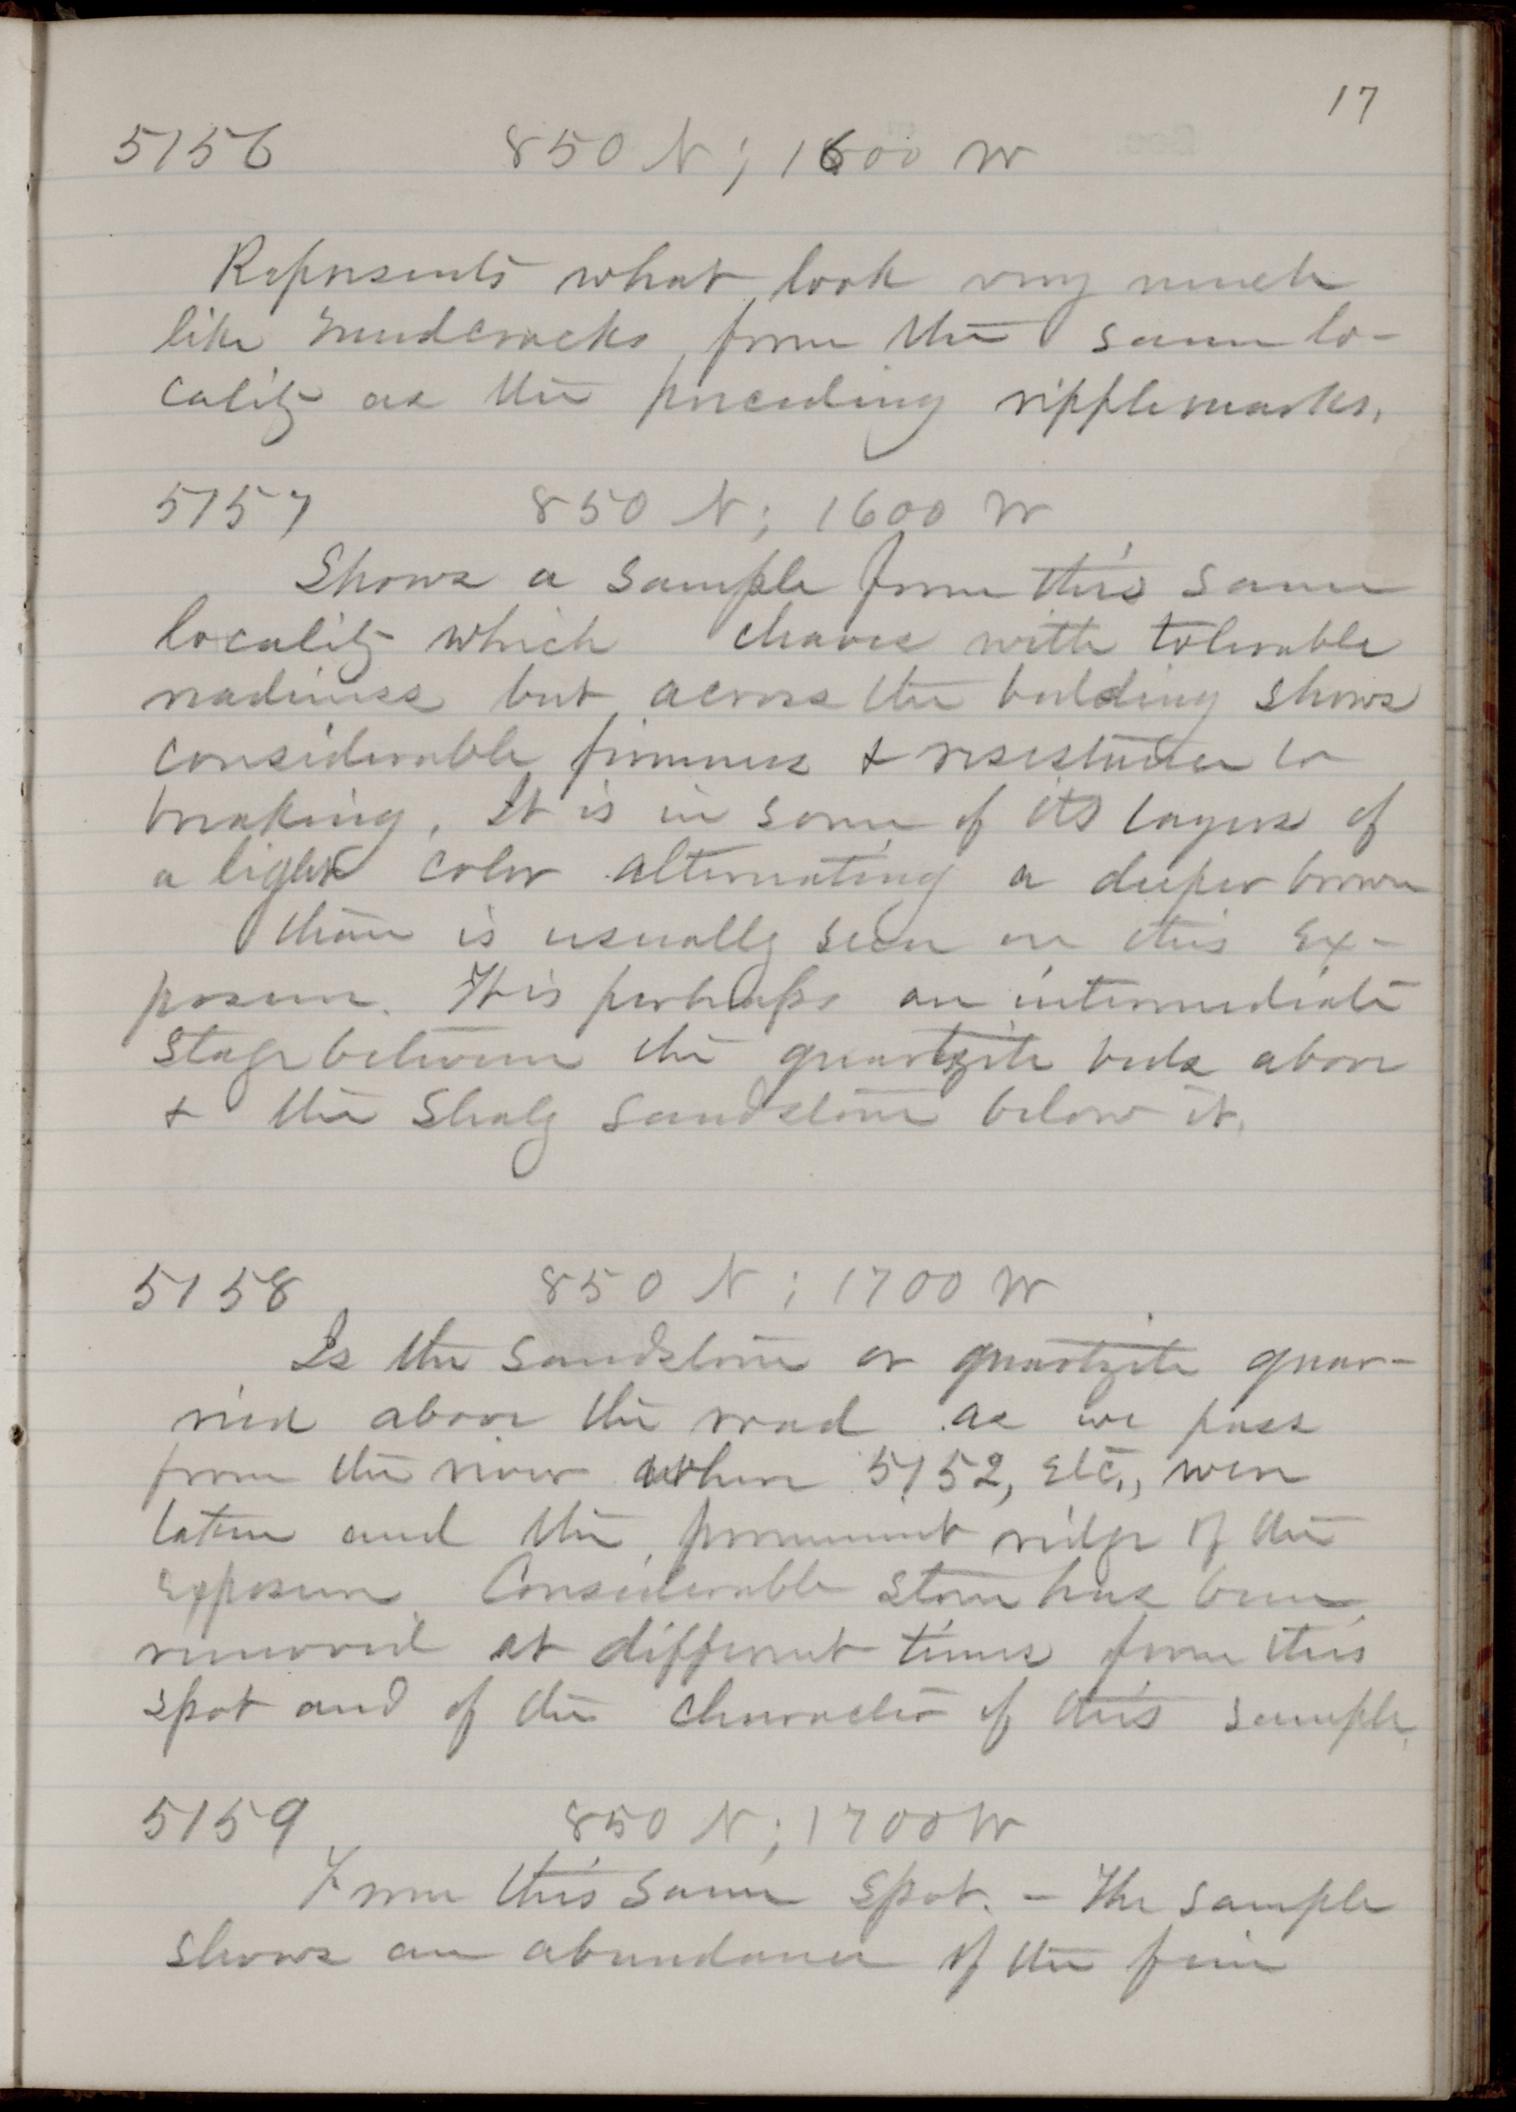 17
5156 850 N; 1600 W
Represents what look very much
like mudcracks from the same lo-
cality as the preceding ripplemarks.
5157 850 N; 1600 W
Shows a sample from this same
locality which cleaves with tolerable
readiness but across the bedding shows
considerable firmness & resistance to
breaking. It is in some of its layers of
a light color alternating a deeper brown
than is usually seen on this ex-
posure. It is perhaps an intermediate
stage between the quartzite beds above
& the shaly sandstone below it.
5158 850 N; 1700 W
Is the sandstone or quartzite quar-
ried above the road as we pass
from the river where 5152, etc., were
taken and the prominent ridge of the
exposure. Considerable stone has been
removed at different times from this
spot and of the character of this sample.
5159 850 N; 1700 W
From this same spot. - The sample
shows an abundance of the fine